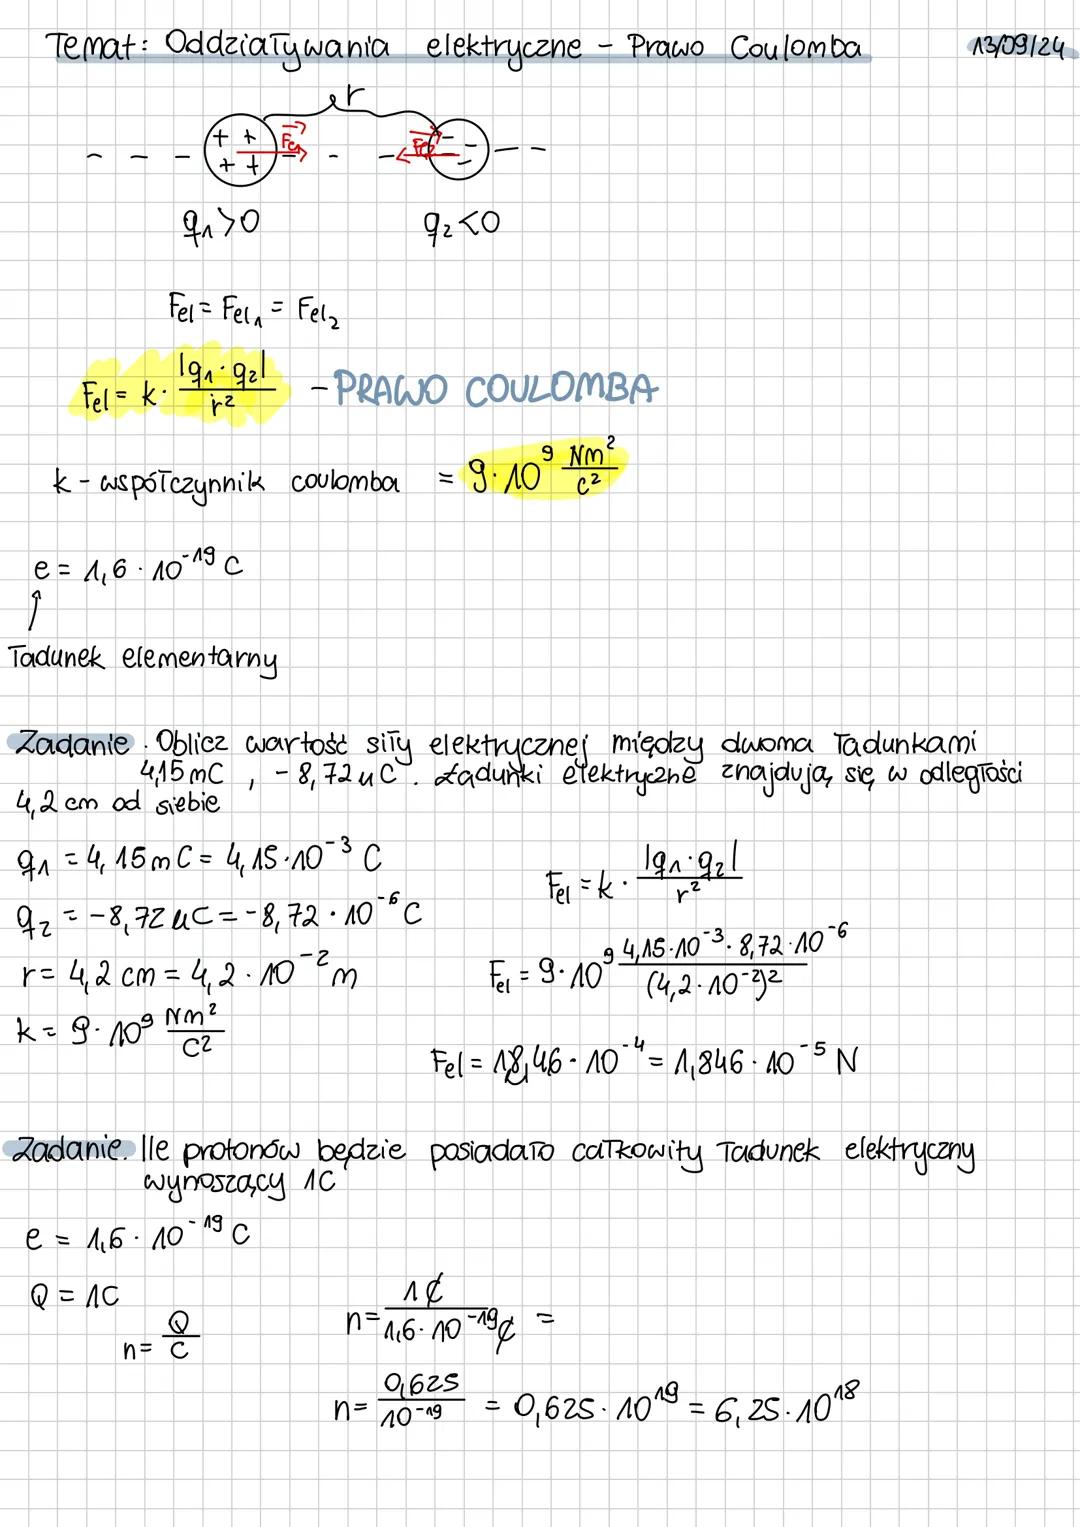 Temat: Oddziaływania elektryczne - Prawo Coulomba 13/09/24
r
+ + Fel1 Fel2 - -
+ + - -
q₁>0 q₂<0
Fel = Fel₁ = Fel₂
Fel = k · |q₁·q₂| / r² - PRAWO COULOMBA
k - współczynnik coulomba = 9·10⁹ Nm²/C²
e = 1,6 · 10⁻¹⁹ C
ładunek elementarny
Zadanie. Oblicz wartość siły elektrycznej między dwoma ładunkami
4,15 mC, -8,72 uC. Ładunki elektryczne znajdują się w odległości
4,2 cm od siebie
q₁ = 4,15 mC = 4,15·10⁻³ C
q₂ = -8,72 uC = -8,72 · 10⁻⁶ C
r = 4,2 cm = 4,2 · 10⁻² m
k = 9·10⁹ Nm²/C²
Fel = k · |q₁·q₂| / r²
Fel = 9·10⁹ 4,15·10⁻³ · 8,72·10⁻⁶ / (4,2·10⁻²)²
Fel = 18,46 · 10⁻⁴ = 1,846 · 10⁻⁵ N
Zadanie. Ile protonów będzie posiadało całkowity ładunek elektryczny
wynoszący 1C
e = 1,6 · 10⁻¹⁹ C
Q = 1C
n = Q/C
n = 1C / 1,6·10⁻¹⁹C =
n = 0,625 / 10⁻¹⁹ = 0,625 · 10¹⁹ = 6,25·10¹⁸